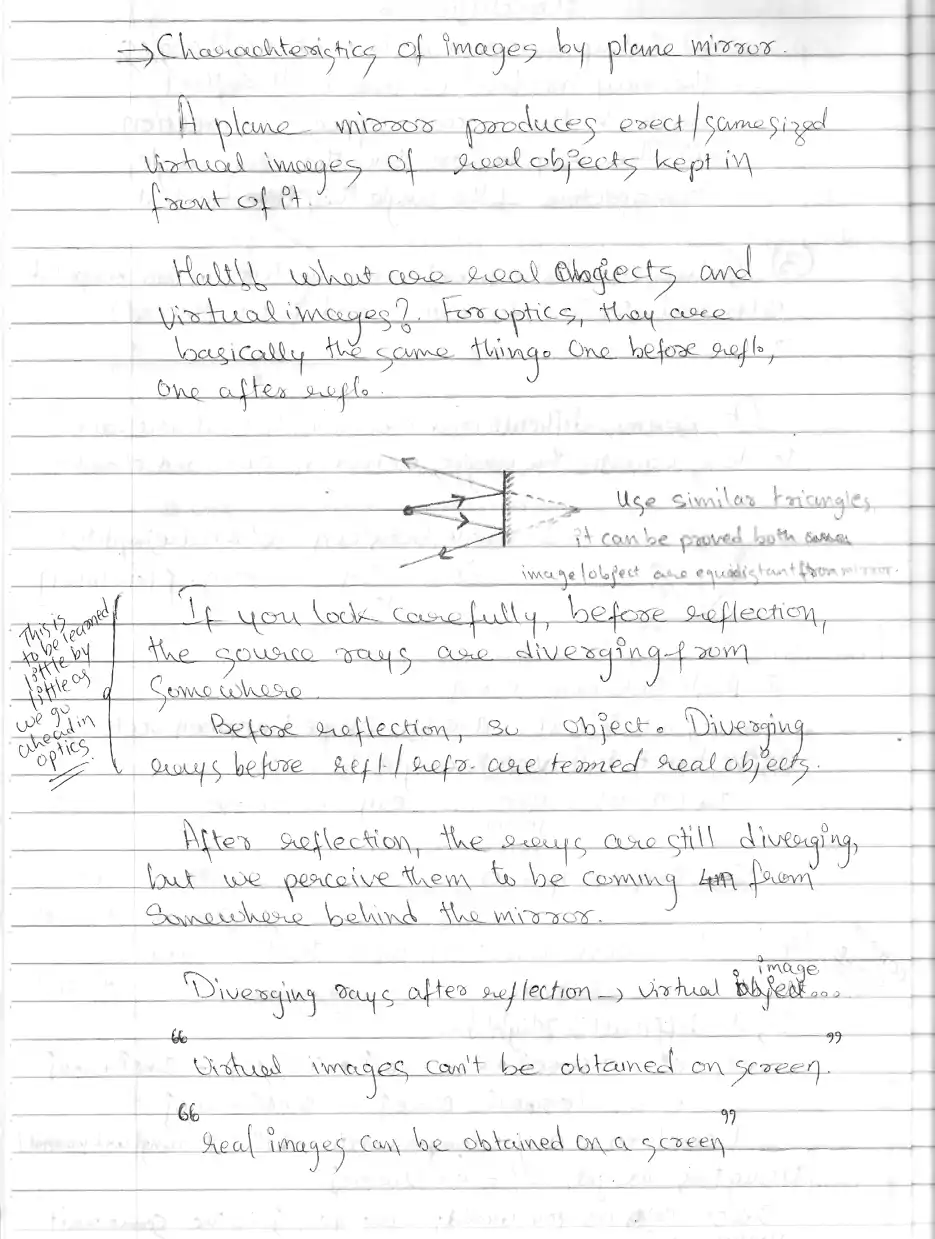 ⇒ Charachteristics of images by plane mirror.
A plane mirror produces erect/same sized
virtual images of real objects kept in
front of it.
Halt!! What are real objects and
virtual images?. For optics, they are
basically the same thing. One before refl.,
one after refl.
Use similar triangles,
it can be proved both
image/object are equidistant from mirror.
This is
to be learned
little by
little as
we go
ahead in
optics.
If you look carefully, before reflection,
the source rays are diverging from
somewhere.
Before reflection, so object. Diverging
rays before refl./refr. are termed real objects.
After reflection, the rays are still diverging,
but we perceive them to be coming from
somewhere behind the mirror.
Diverging rays after reflection → virtual image...
"Virtual images can't be obtained on screen."
"real images can be obtained on a screen"